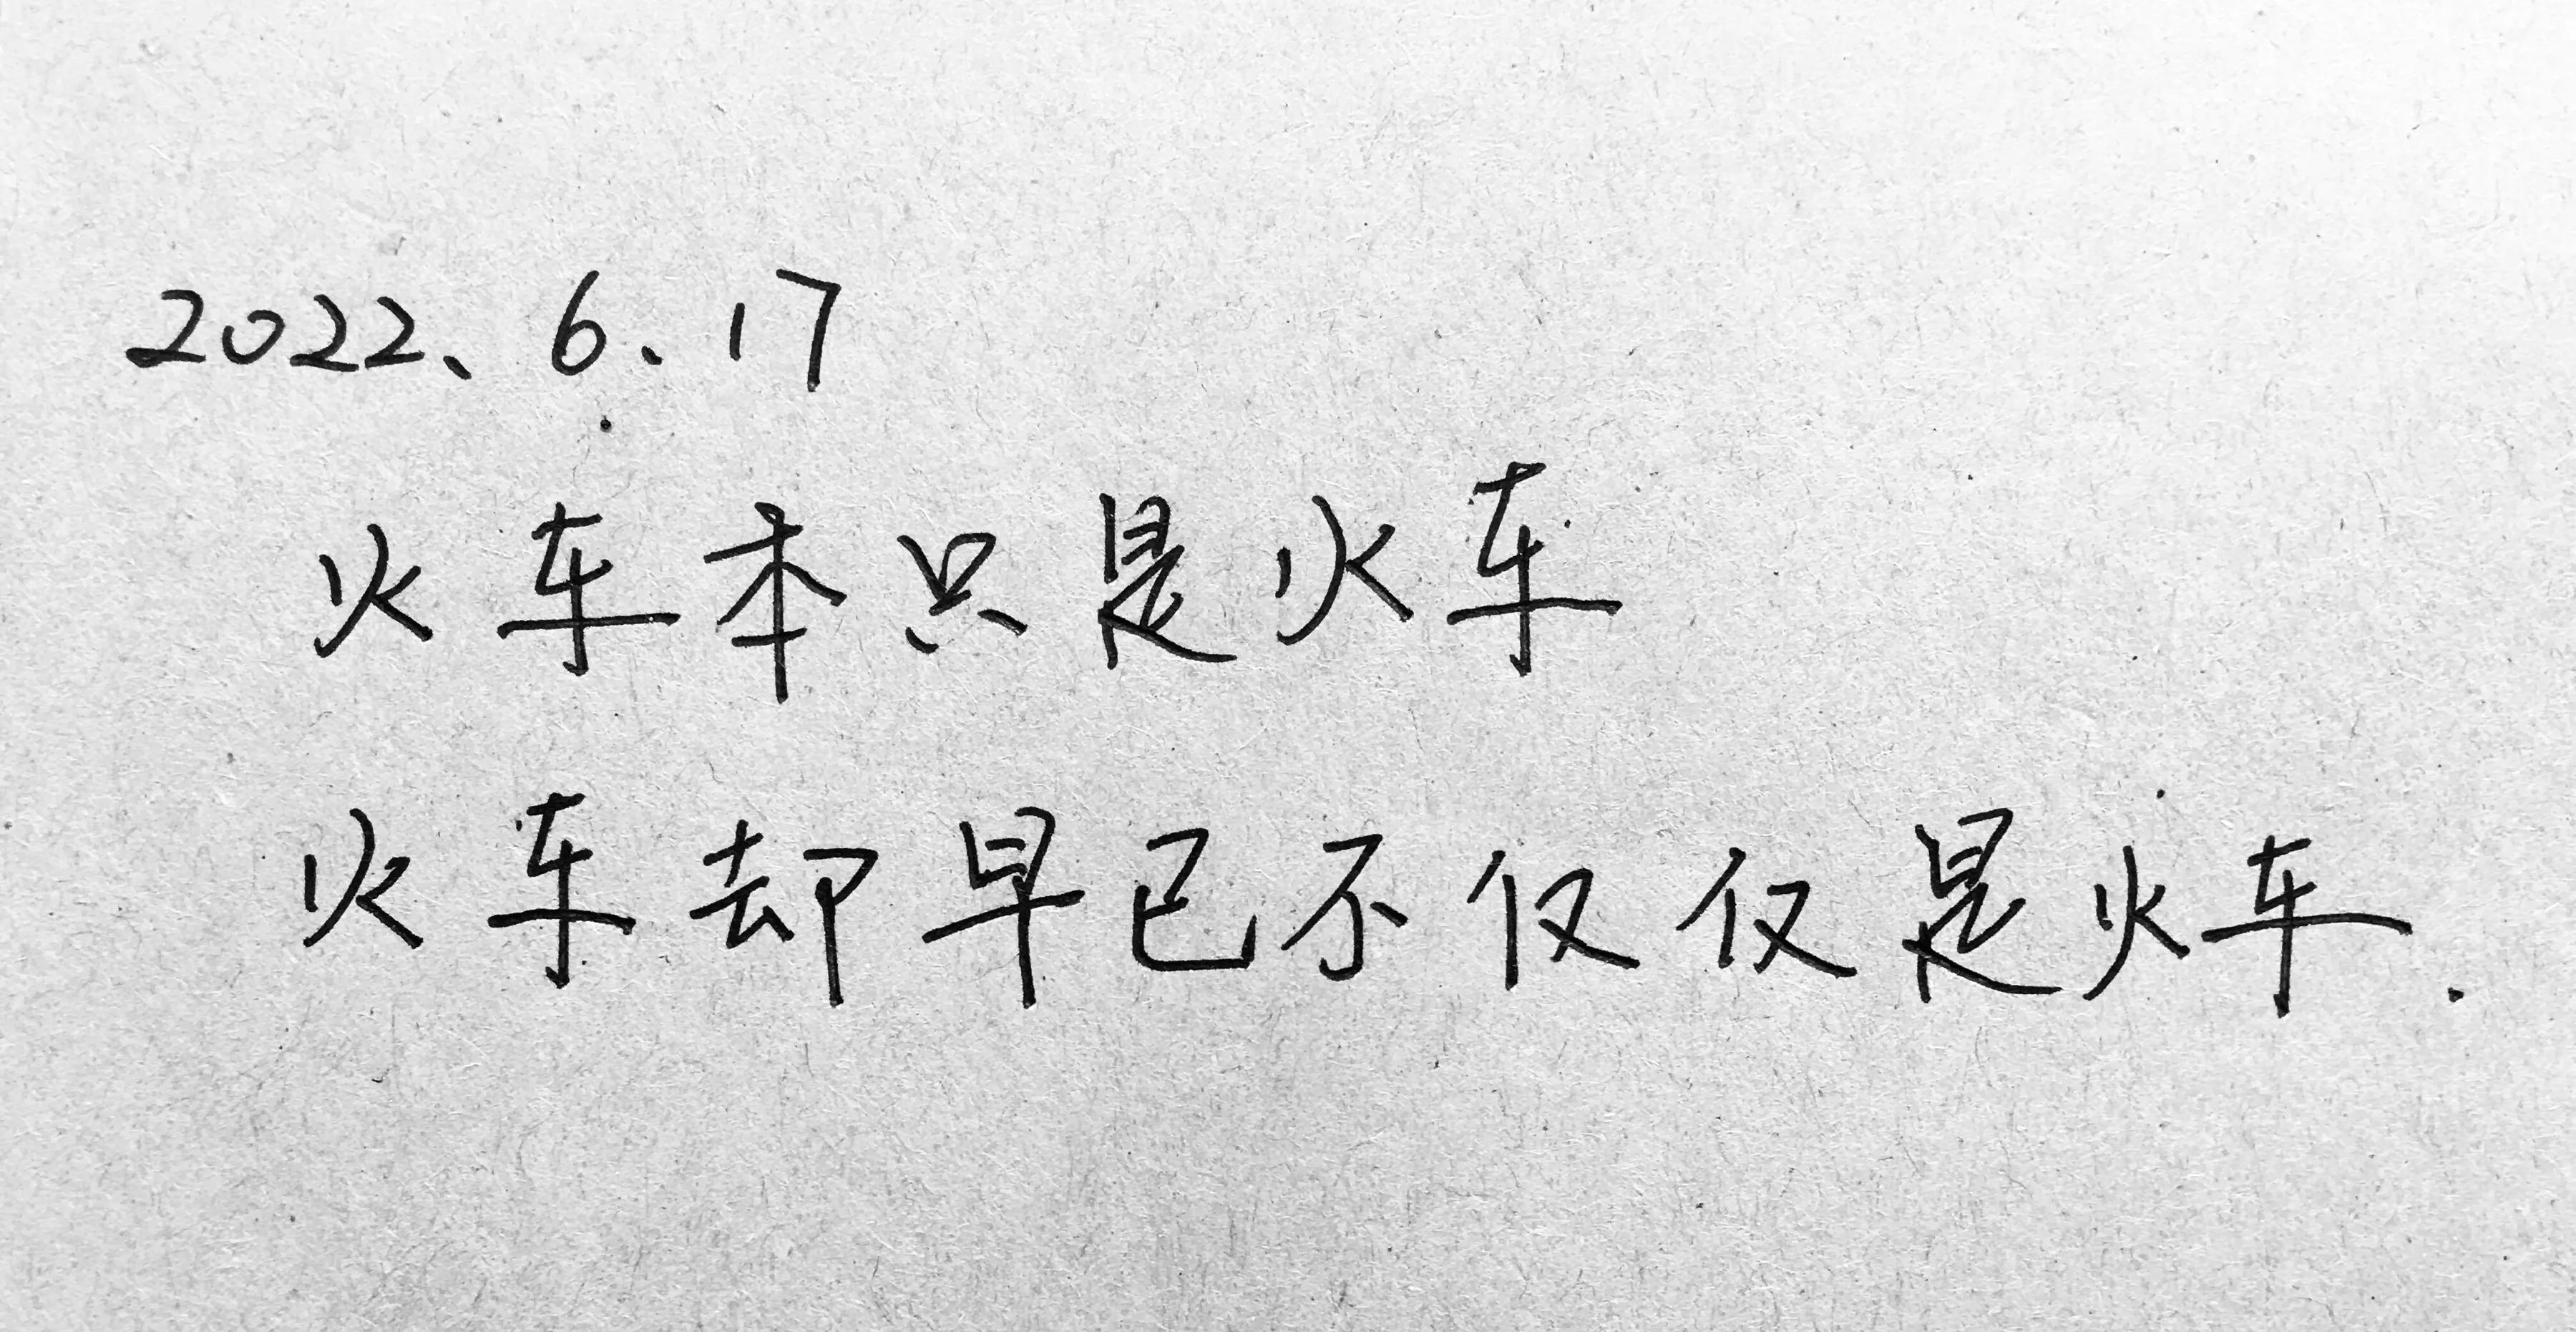 2022、6、17
火车本只是火车
火车却早已不仅仅是火车.